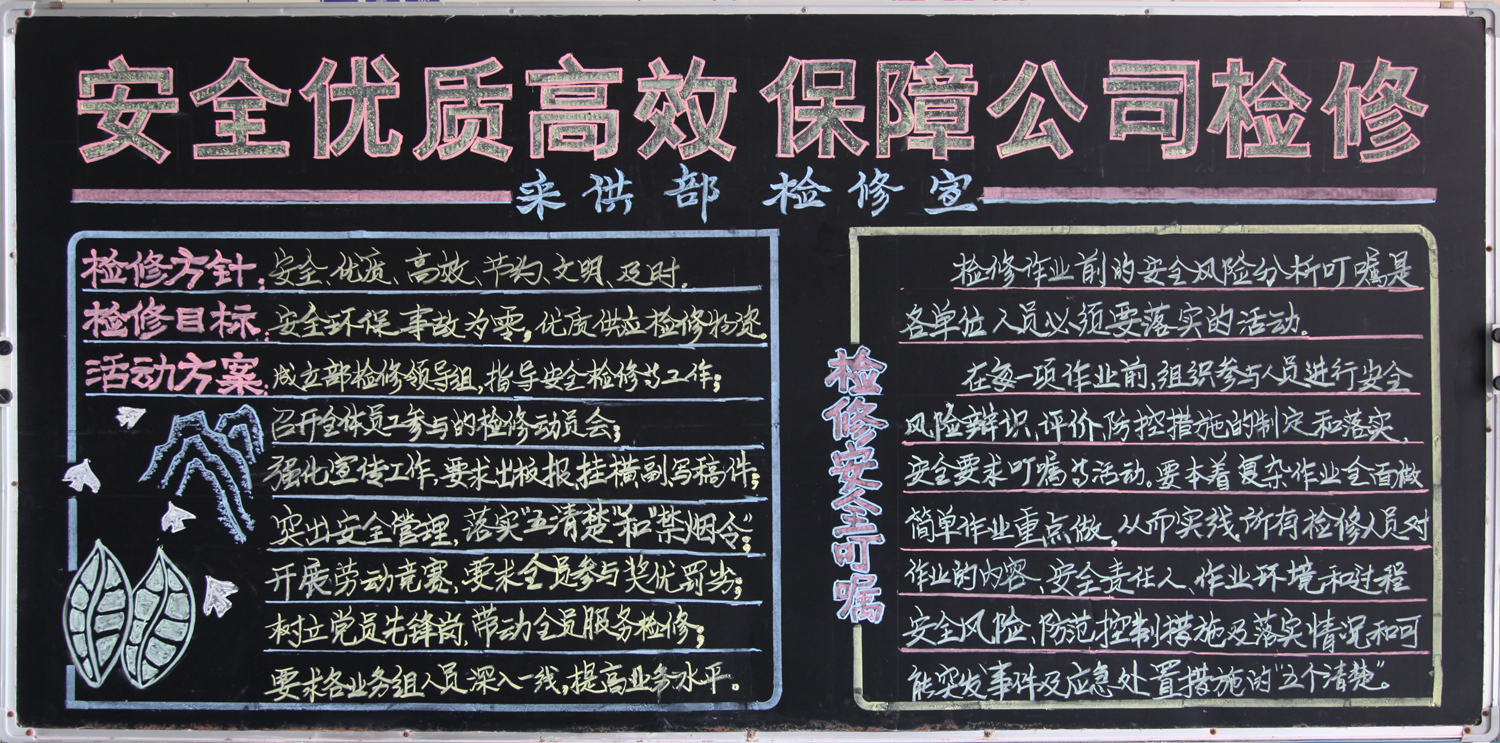 安全优质高效 保障公司检修
采供部 检修宣
检修方针:安全、优质、高效、节约、文明、及时。
检修目标:安全环保事故为零,优质供应检修物资。
活动方案:成立部检修领导组,指导安全检修等工作;
召开全体员工参与的检修动员会;
强化宣传工作,要求出板报,挂横副写稿件;
突出安全管理,落实“五清楚”和“禁烟令”;
开展劳动竞赛,要求全员参与奖优罚劣;
树立党员先锋岗,带动全员服务检修;
要求各业务组人员深入一线,提高业务水平。
检修安全叮嘱
检修作业前的安全风险分析叮嘱是
各单位人员必须要落实的活动。
在每一项作业前,组织参与人员进行安全
风险辩识、评价、防控措施的制定和落实、
安全要求叮嘱等活动。要本着复杂作业全面做
简单作业重点做,从而实线所有检修人员对
作业的内容、安全责任人、作业环境和过程
安全风险、防范控制措施及落实情况和可
能突发事件及应急处置措施的“五个清楚”。